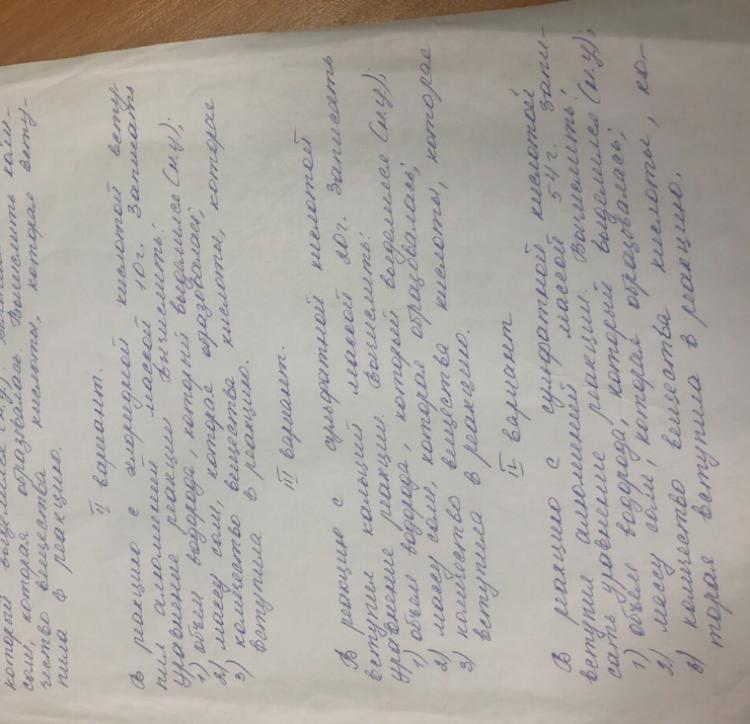 который выделился (н.у).
соли, которая образовалась. Вычислить коли-
чество вещества кислоты, которая всту-
пила в реакцию.
II вариант.
В реакцию с хлоридной кислотой всту-
пил алюминий массой 10 г. Записать
уравнение реакции. Вычислить:
1) объем водорода, который выделился (н.у);
2) массу соли, которая образовалась;
3) количество вещества кислоты, которая
вступила в реакцию.
III вариант.
В реакцию с сульфатной кислотой
вступил кальций массой 20 г. Записать
уравнение реакции. Вычислить:
1) объем водорода, который выделился (н.у);
2) массу соли, которая образовалась;
3) количество вещества кислоты, которая
вступила в реакцию.
II вариант
В реакцию с сульфатной кислотой
вступил алюминий массой 54 г. Запи-
сать уравнение реакции. Вычислить:
1) объем водорода, который выделился (н.у);
2) массу соли, которая образовалась;
3) количество вещества кислоты, ко-
торая вступила в реакцию.